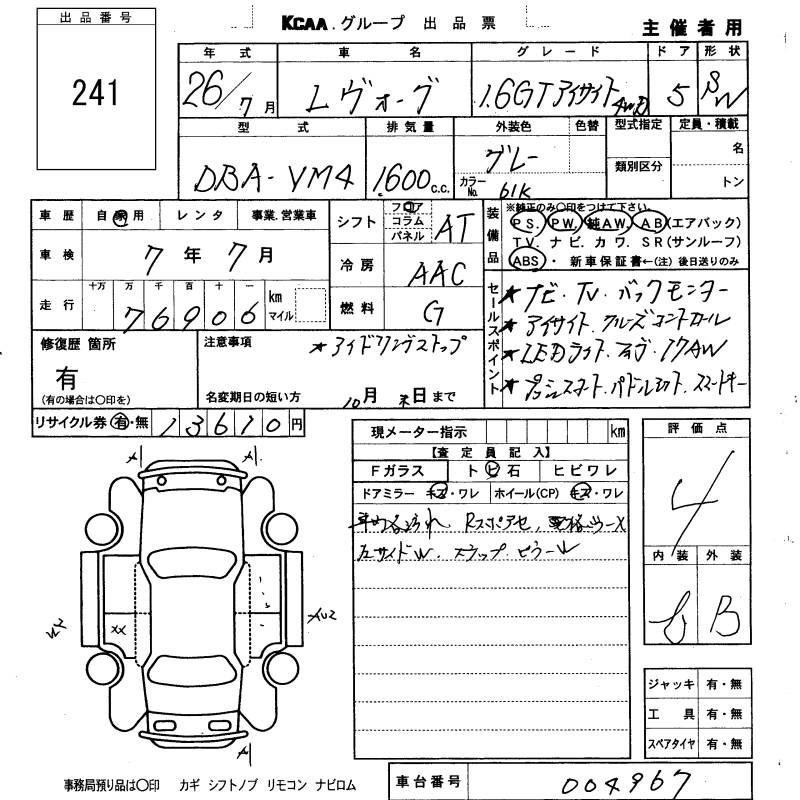 KCAA.グループ 出品票
主催者用
出品番号
241
年式 車名 グレード ドア 形状
26/7月 レヴォーグ 1.6GTアイサイト4WD 5 SW
型式 排気量 外装色 色替 型式指定 定員・積載
DBA-VM4 1600c.c. グレー 名
カラーNo. 61K 類別区分 トン
車歴 自家用 レンタ 事業.営業車
シフト フロア コラム パネル AT
車検 7年7月
冷房 AAC
走行 十万 万 千 百 十 一 km マイル
76906
燃料 G
装備品 ※純正のみ〇印をつけて下さい。
PS. PW. 純AW. AB(エアバック)
TV. ナビ. カワ. SR(サンルーフ)
ABS・ 新車保証書←(注)後日送りのみ
セールスポイント
★ナビ.TV.バックモニター
★アイサイト.クルーズコントロール
★LEDライト. 17AW
★プッシュスタート.パドルシフト.スマートキー
修復歴 箇所
有
(有の場合は〇印を)
注意事項
★アイドリングストップ
名変期日の短い方 10月末日まで
リサイクル券 有・無 13610円
現メーター指示 km
【査定員記入】
Fガラス トビ石 ヒビワレ
ドアミラー キズ・ワレ ホイール(CP) キズ・ワレ
W. ステップ.ピラーW
評価点
4
内装 外装
B
XX
ジャッキ 有・無
工具 有・無
スペアタイヤ 有・無
事務局預り品は〇印 カギ シフトノブ リモコン ナビロム
車台番号 004967